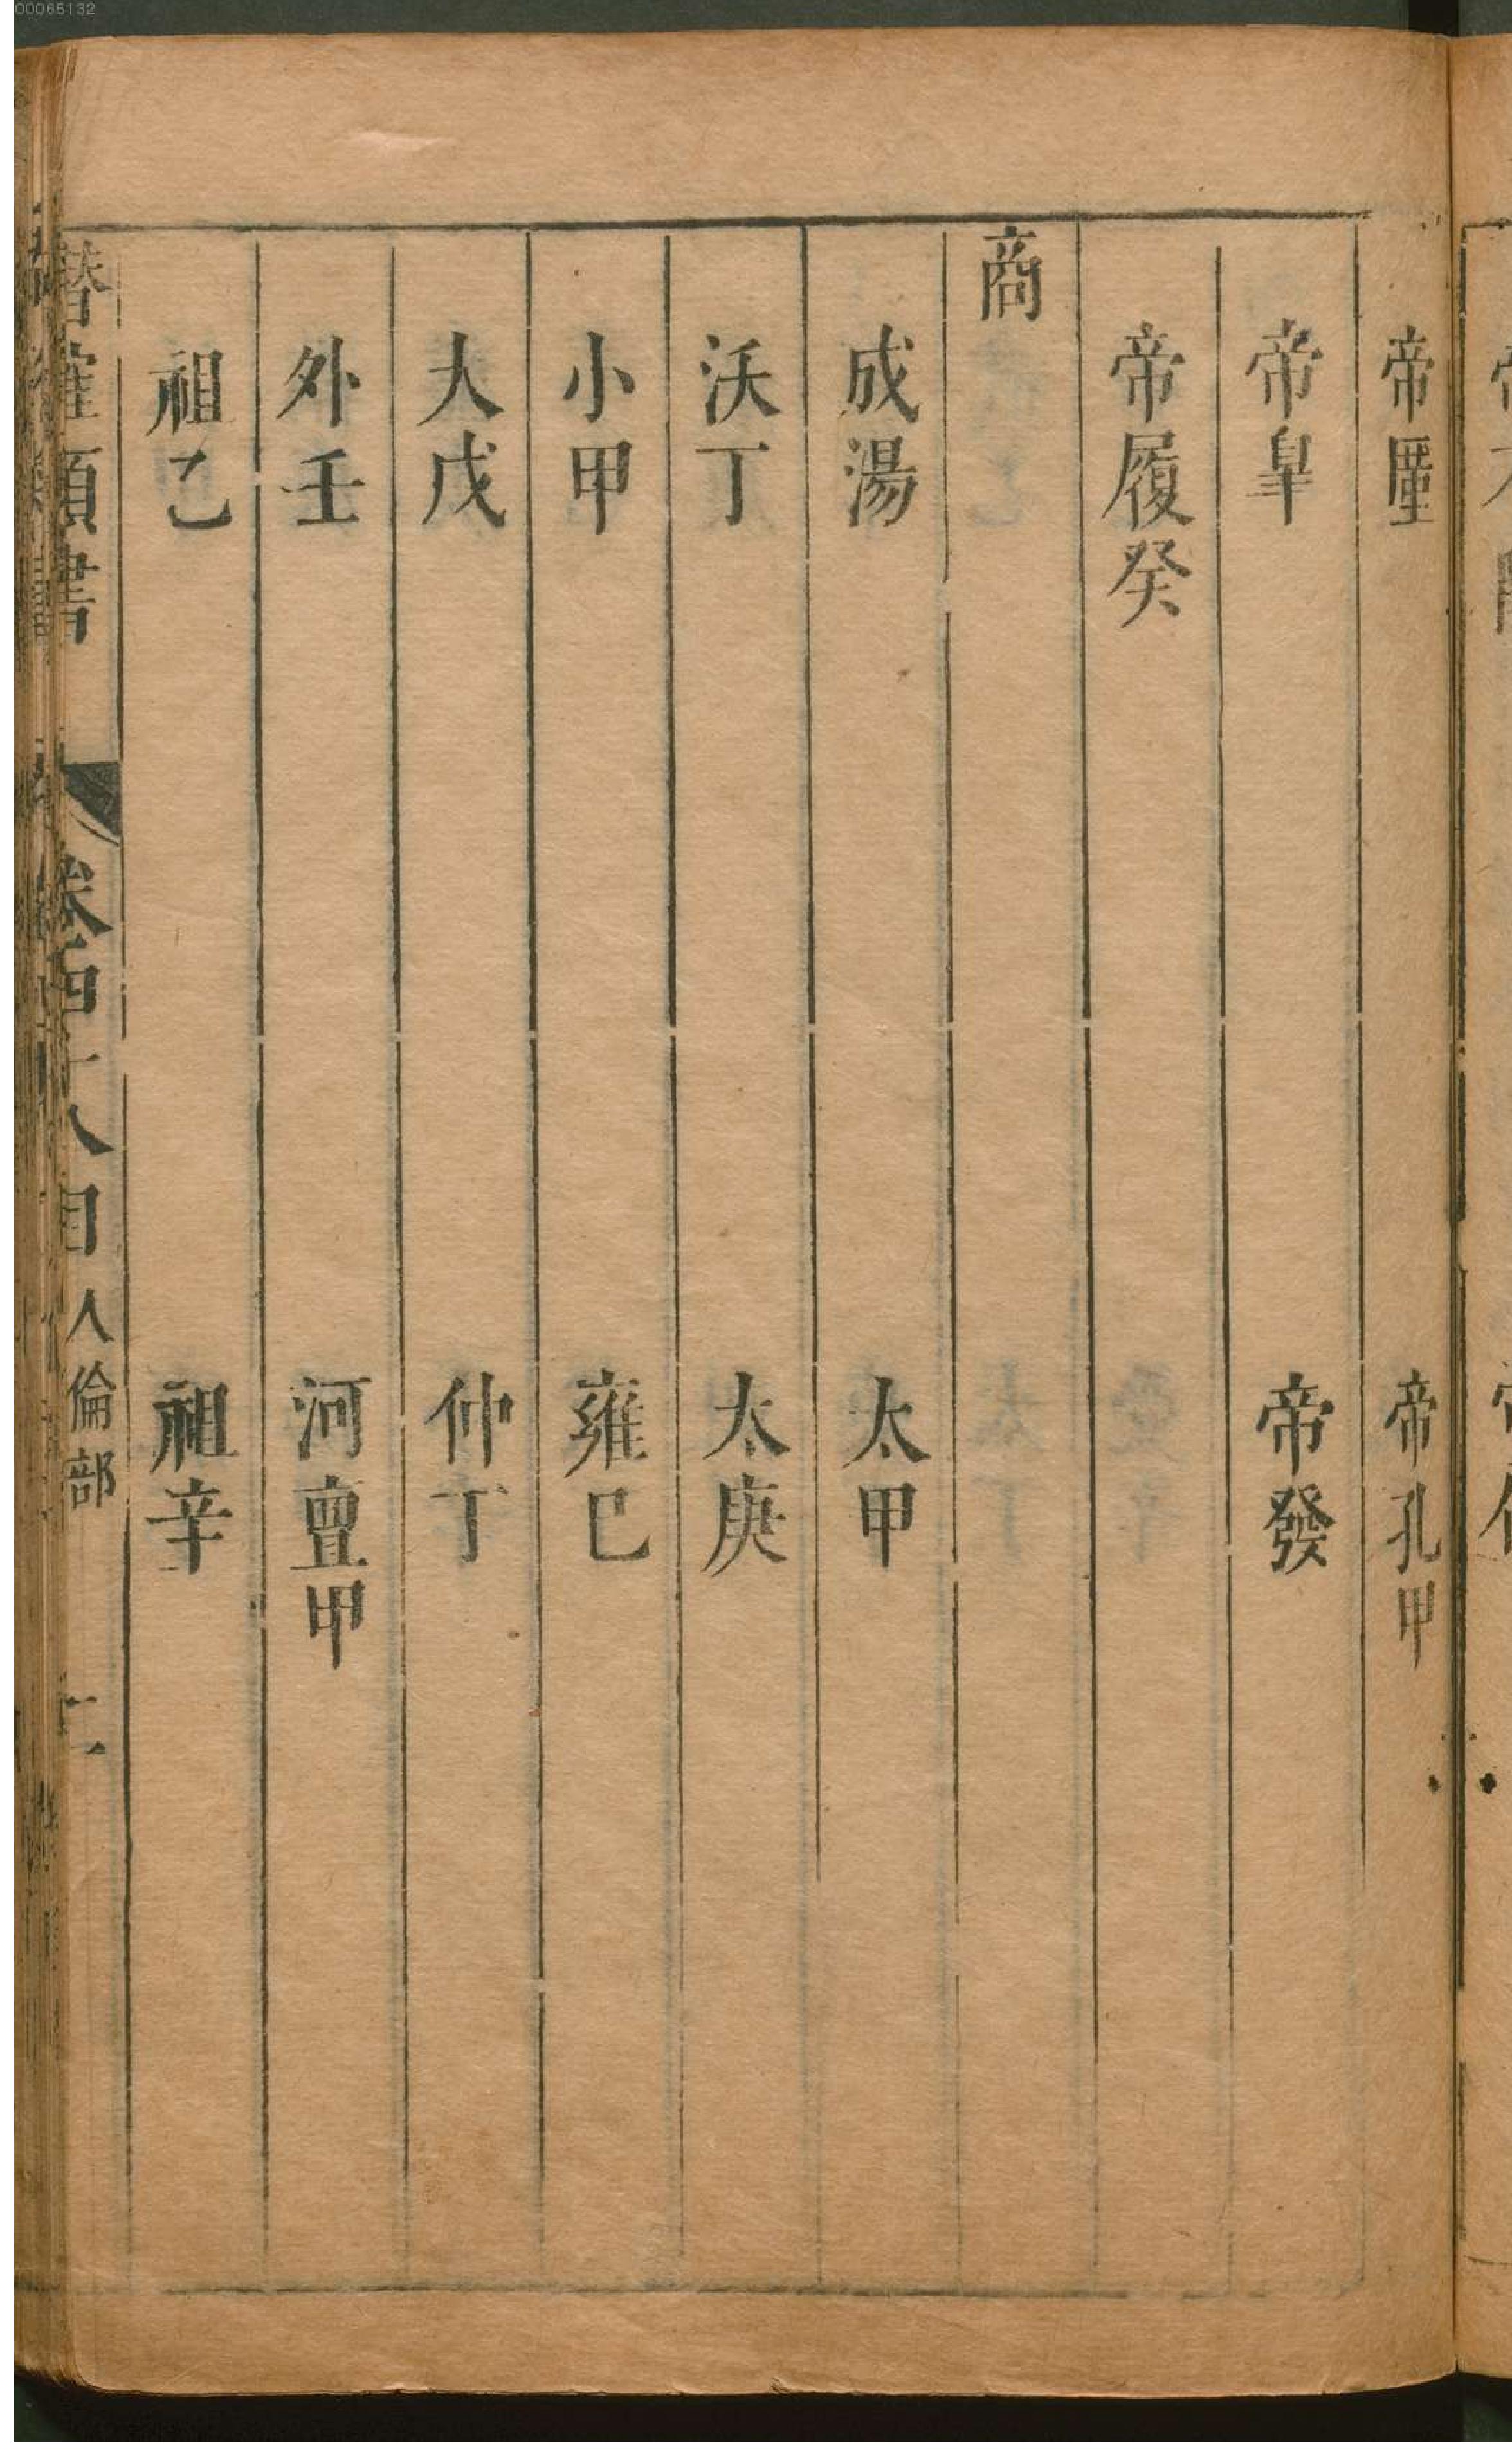 00065132
帝廑　帝孔甲
帝皐　帝發
帝履癸
商
成湯　太甲
沃丁　太庚
小甲　雍巳
大戊　仲丁
外壬　河亶甲
祖乙　祖辛
潛確類書　卷四十八目　人倫部　二